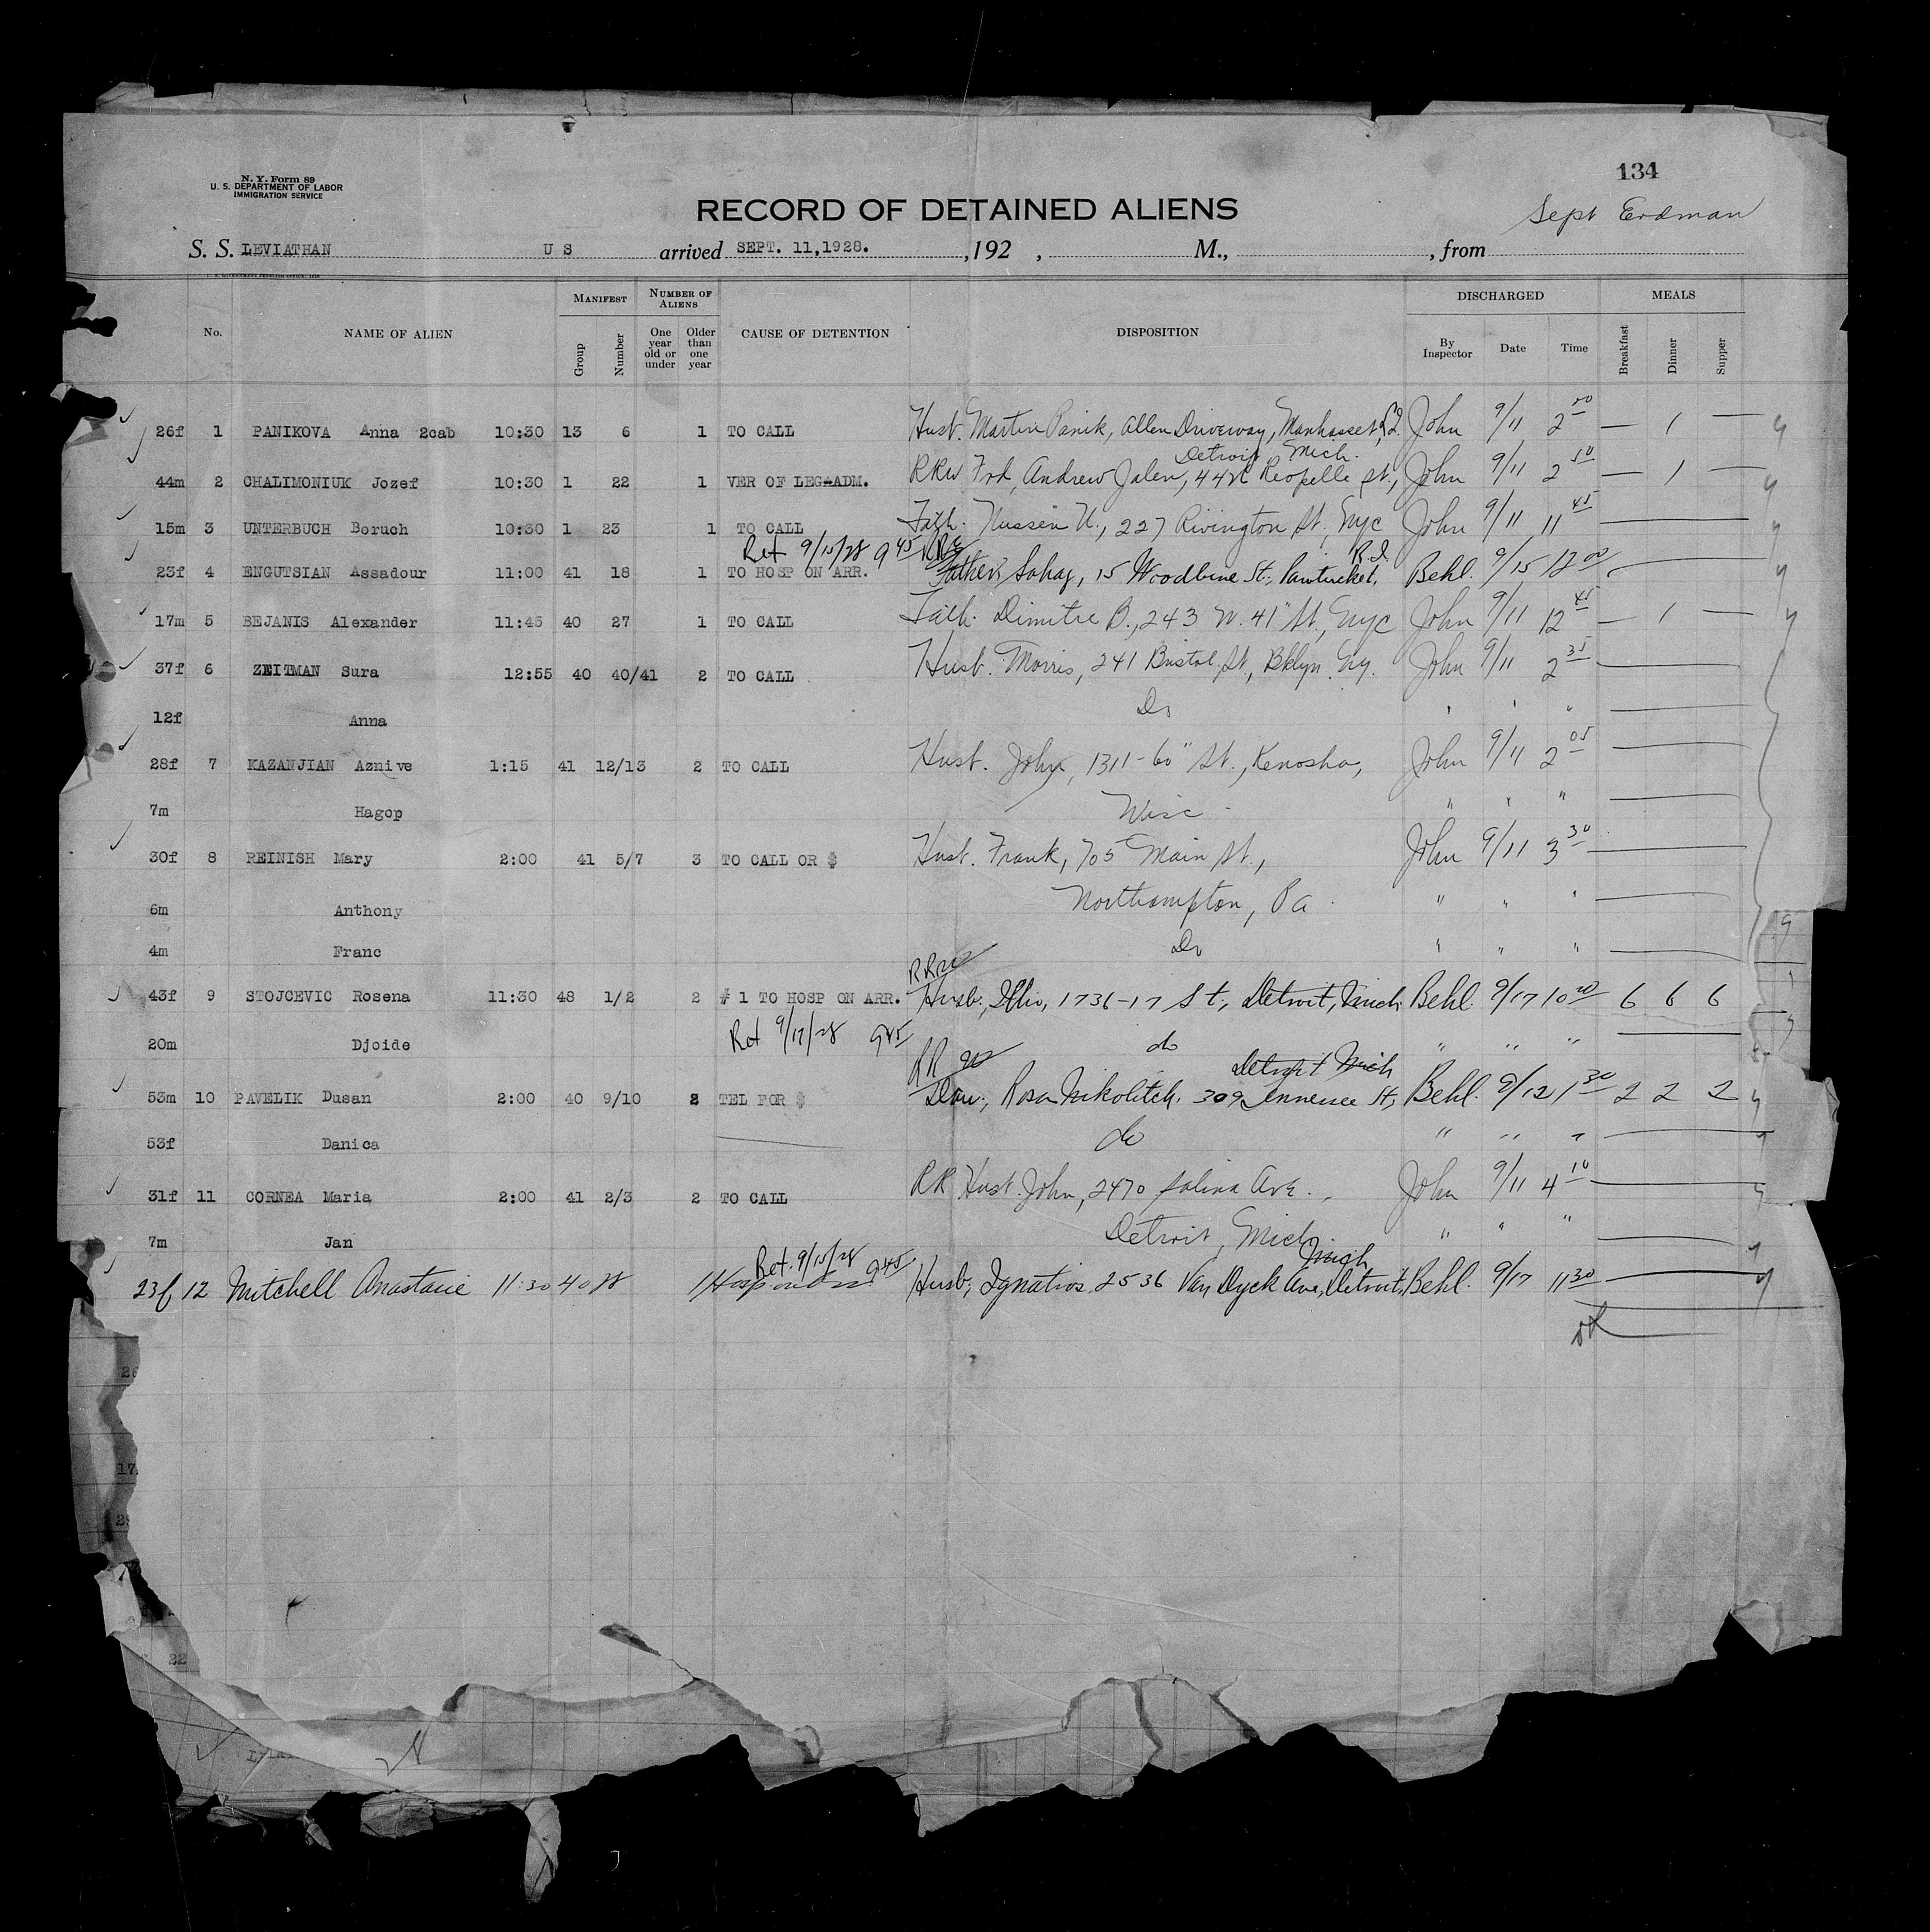 134
N. Y. Form 89
U. S. DEPARTMENT OF LABOR
IMMIGRATION SERVICE
RECORD OF DETAINED ALIENS
Sept Erdman
S. S. LEVIATHAN U S arrived SEPT. 11,1928. ,192 , M., , from
MANIFEST NUMBER OF ALIENS DISCHARGED MEALS
No. NAME OF ALIEN Group Number One year old or under Older than one year CAUSE OF DETENTION DISPOSITION By Inspector Date Time Breakfast Dinner Supper
26f 1 PANIKOVA Anna 2cab 10:30 13 6 1 TO CALL Husb. Martin Panik, Allen Driveway, Manhasset, John 9/11 2 00 — 1 —
Detroit, Mich.
44m 2 CHALIMONIUK Jozef 10:30 1 22 1 VER OF LEG-ADM. Frd, Andrew St., John 9/11 2 50 — 1 —
15m 3 UNTERBUCH Boruch 10:30 1 23 1 TO CALL Fath. Nussen U., 227 Rivington St, Nyc John 9/11 11 45
Ret 9/15/28 9 45 R.I.
23f 4 ENGUTSIAN Assadour 11:00 41 18 1 TO HOSP ON ARR. Father, Sahag, 15 Woodbine St., Pawtucket, Behl. 9/15 12 00
17m 5 BEJANIS Alexander 11:45 40 27 1 TO CALL Fath. Dimitre B., 243 W. 41" St., Nyc John 9/11 12 45 — 1 —
37f 6 ZEITMAN Sura 12:55 40 40/41 2 TO CALL Husb. Morris, 241 Bristol St., Bklyn Ny. John 9/11 2 35
12f Anna Do " " "
28f 7 KAZANJIAN Aznive 1:15 41 12/13 2 TO CALL Husb. John, 1311-60" St., Kenosha, John 9/11 2 05
7m Hagop Wisc. " " "
30f 8 REINISH Mary 2:00 41 5/7 3 TO CALL OR $ Husb. Frank, 705 Main St., John 9/11 3 30
6m Anthony Northampton, Pa. " " "
4m Franc Do " " "
43f 9 STOJCEVIC Rosena 11:30 48 1/2 2 # 1 TO HOSP ON ARR. Husb., 1736-17 St., Detroit, Mich. Behl. 9/17 10 20 6 6 6
Ret 9/17/28 9 45
20m Djoide do " " "
Detroit Mich
53m 10 PAVELIK Dusan 2:00 40 9/10 2 TEL FOR $ Dau., Rosa Nikolitch, 309 Tennessee St, Behl. 9/12 1 30 2 2 2
53f Danica do " " "
31f 11 CORNEA Maria 2:00 41 2/3 2 TO CALL RR Husb. John, 2470 Salina Ave., John 9/11 4 10
7m Jan Detroit, Mich. " " "
Ret. 9/15/28 9 45 Mich
23f 12 Mitchell Anastasie 11:30 40 28 1 Hosp on arr Husb; Ignatios, 2536 Van Dyck Ave, Detroit, Behl. 9/17 11 30
17
22